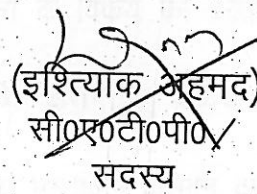 (इश्तियाक अहमद)
सी0ए0टी0पी0
सदस्य